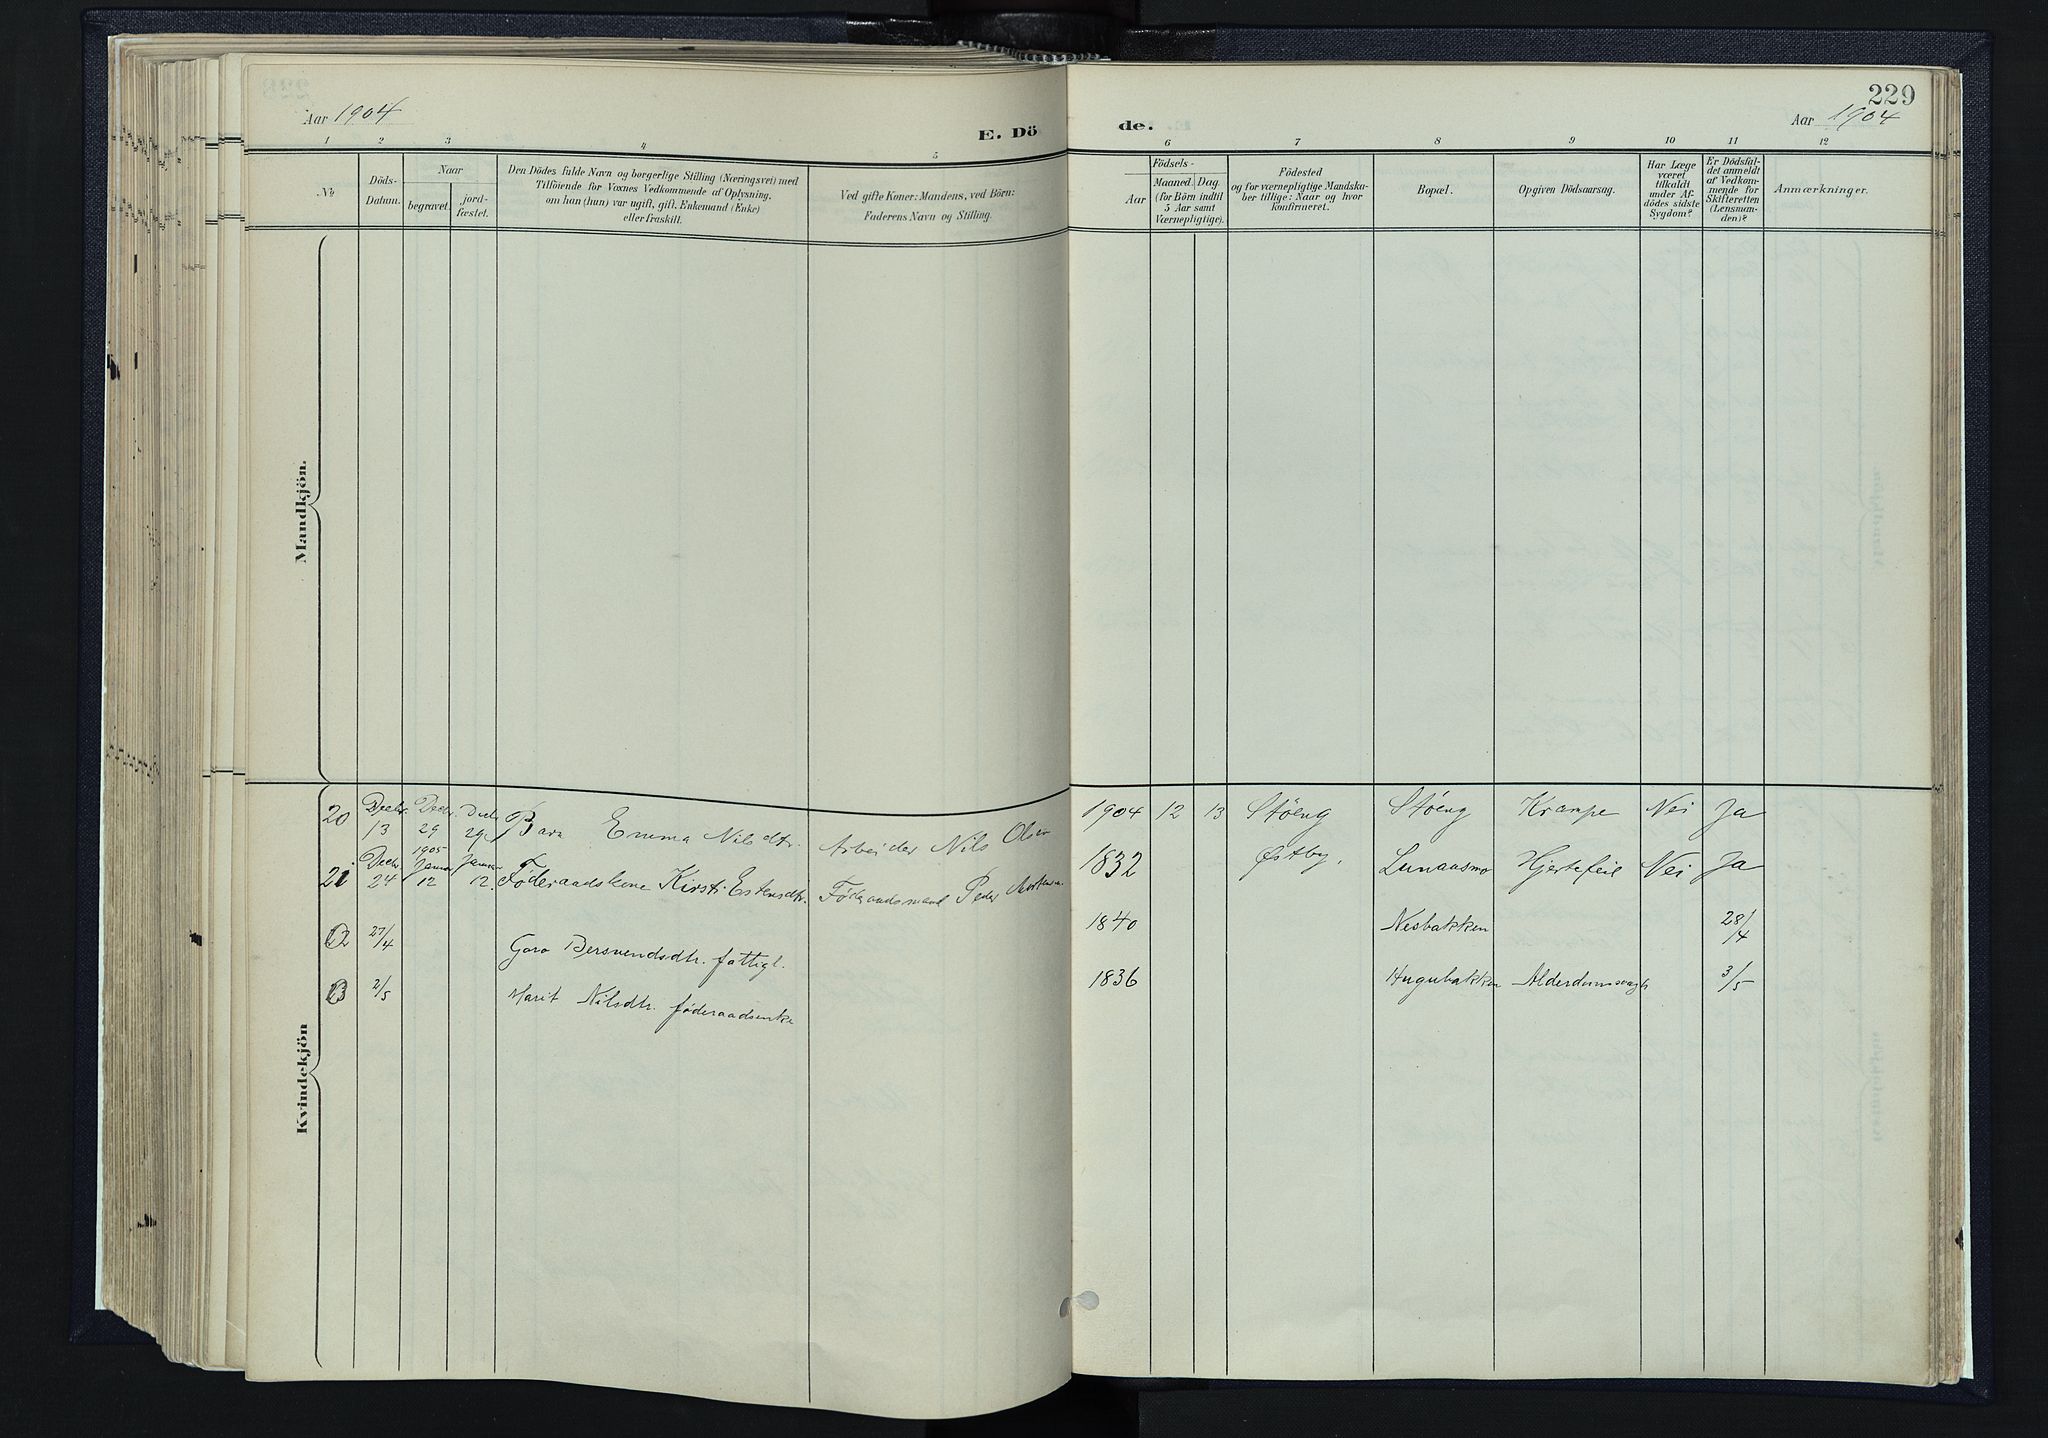 Aar 1904
E. Dö
1 2 3 4 5
№
Döds-
Datum.
Naar
begravet.
jord-
fæstet.
Den Dödes fulde Navn og borgerlige Stilling (Næringsvei) med
Tilföiende for Voxnes Vedkommende af Oplysning,
om han (hun) var ugift, gift, Enkemand (Enke)
eller fraskilt.
Ved gifte Koner: Mandens, ved Börn:
Faderens Navn og Stilling.
Mandkjön.
Kvindekjön
20 Decbr. 13 Decbr. 29 Decb 29. Barn Emma Nilsdtr. Arbeider Nils Olsen
21 Decbr. 24 1905 Januar 12 Januar 12. Föderaadskone Kirsti Estensdtr. Föderaadsmand Peder Mortensen.
22 27/4 Goro Bersvendsdtr. fattigl.
23 2/5 Marit Nilsdtr. föderaadsenke
229
de.
Aar 1904
6 7 8 9 10 11 12
Aar
Födsels-
Maaned. Dag.
(for Börn indtil
5 Aar samt
Værnepligtige).
Födested
og for værnepligtige Mandska-
ber tillige: Naar og hvor
konfirmeret.
Bopæl.
Opgiven Dödsaarsag.
Har Læge
været
tilkaldt
under Af-
dödes sidste
Sygdom?
Er Dödsfal-
det anmeldt
af Vedkom-
mende for
Skifteretten
(Lensman-
den)?
Anmærkninger.
1904 12 13 Stöeng Stöeng Krampe Nei Ja
1832 Østby. Lunaasmo Hjertefeil Nei Ja
1840 Nesbakken 28/4
1836 Hugubakken 3/5